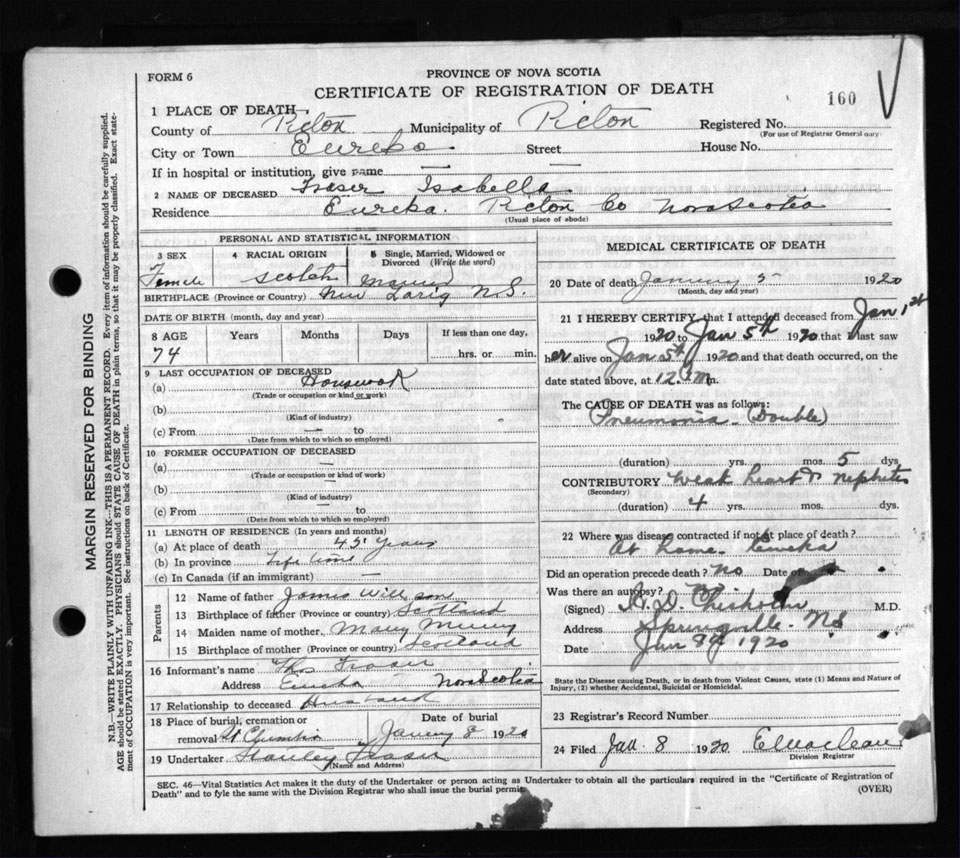 FORM 6
PROVINCE OF NOVA SCOTIA
CERTIFICATE OF REGISTRATION OF DEATH
160
1 PLACE OF DEATH
County of Picton Municipality of Picton Registered No.
(For use of Registrar General only)
City or Town Eureka Street — House No.
If in hospital or institution, give name —
2 NAME OF DECEASED Fraser Isabella
Residence Eureka. Picton Co Nova Scotia
(Usual place of abode)
PERSONAL AND STATISTICAL INFORMATION
3 SEX 4 RACIAL ORIGIN 5 Single, Married, Widowed or Divorced (Write the word)
Female Scotch Married
BIRTHPLACE (Province or Country) New Larig N.S.
DATE OF BIRTH (month, day and year)
8 AGE Years Months Days If less than one day,
74 hrs. or min.
9 LAST OCCUPATION OF DECEASED
(a) Housework
(Trade or occupation or kind or work)
(b)
(Kind of industry)
(c) From — to
(Date from which to which so employed)
10 FORMER OCCUPATION OF DECEASED
(a) —
(Trade or occupation or kind of work)
(b) —
(Kind of industry)
(c) From — to
(Date from which to which so employed)
11 LENGTH OF RESIDENCE (In years and months)
(a) At place of death 45 years
(b) In province Life time
(c) In Canada (if an immigrant) —
Parents
12 Name of father James
13 Birthplace of father (Province or country) Scotland
14 Maiden name of mother, Mary
15 Birthplace of mother (Province or country) Scotland
16 Informant's name Thos Fraser
Address Eureka Nova Scotia
17 Relationship to deceased Husband
18 Place of burial, cremation or removal St Columba
Date of burial
January 8 1920
19 Undertaker Stanley Fraser
(Name and Address)
MEDICAL CERTIFICATE OF DEATH
20 Date of death January 5 1920
(Month, day and year)
21 I HEREBY CERTIFY, that I attended deceased from Jan 1st
1920 to Jan 5th 1920 that I last saw
her alive on Jan 5th 1920 and that death occurred, on the
date stated above, at 12 m.
The CAUSE OF DEATH was as follows:
Pneumonia (Double)
(duration) yrs. mos. 5 dys.
CONTRIBUTORY Weak heart & Nephritis
(Secondary)
(duration) 4 yrs. mos. dys.
22 Where was disease contracted if not at place of death?
At home. Eureka
Did an operation precede death? no Date of
Was there an autopsy? no
(Signed) D. Chisholm M.D.
Address Springville. NS
Date Jan 8th 1920
State the Disease causing Death, or in death from Violent Causes, state (1) Means and Nature of Injury, (2) whether Accidental, Suicidal or Homicidal.
23 Registrar's Record Number
24 Filed Jan 8 1920
Division Registrar
SEC. 46—Vital Statistics Act makes it the duty of the Undertaker or person acting as Undertaker to obtain all the particulars required in the "Certificate of Registration of
Death" and to fyle the same with the Division Registrar who shall issue the burial permit.
(OVER)
MARGIN RESERVED FOR BINDING
N.B.—WRITE PLAINLY WITH UNFADING INK—THIS IS A PERMANENT RECORD. Every item of information should be carefully supplied.
AGE should be stated EXACTLY. PHYSICIANS should STATE CAUSE OF DEATH in plain terms, so that it may be properly classified. Exact statement of OCCUPATION is very important. See instructions on back of Certificate.